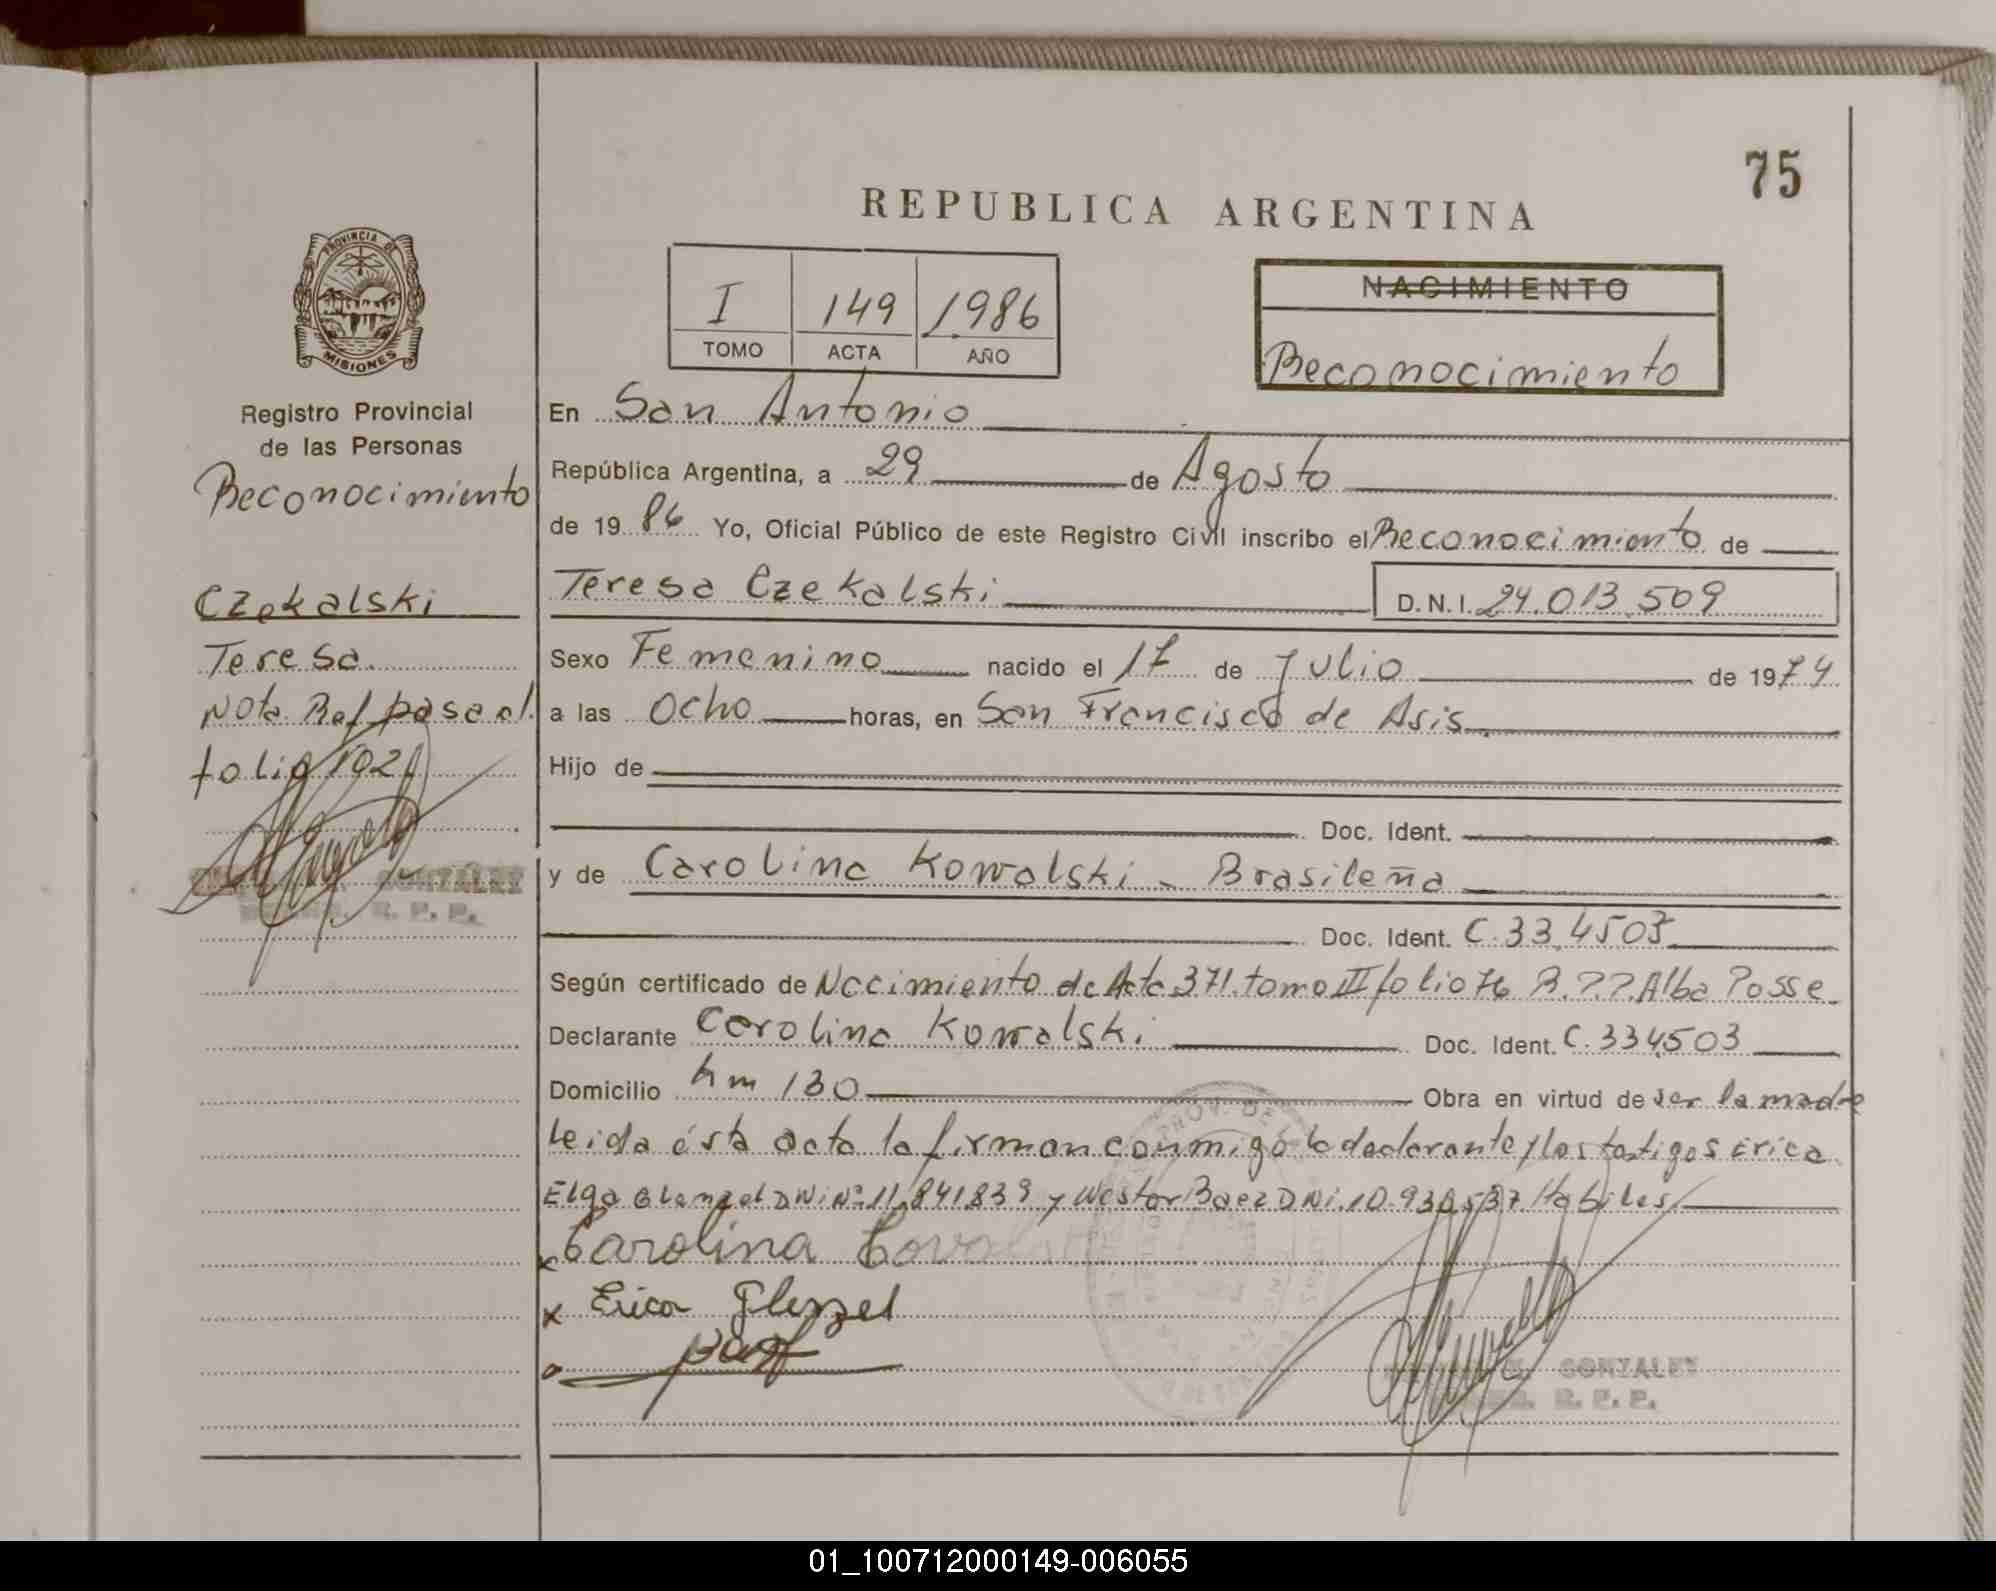 75
REPUBLICA ARGENTINA
PROVINCIA DE
MISIONES
I 149 1986
TOMO ACTA AÑO
NACIMIENTO
Reconocimiento
Registro Provincial
de las Personas
Reconocimiento
Czekalski
Teresa
Nota Ref pasa al
folio 192
GONZALEZ
R. P. P.
En San Antonio
República Argentina, a 29 de Agosto
de 1986 Yo, Oficial Público de este Registro Civil inscribo el Reconocimiento de
Teresa Czekalski D.N.I. 24.013.509
Sexo Femenino nacido el 17 de Julio de 1974
a las Ocho horas, en San Francisco de Asis
Hijo de
Doc. Ident.
y de Carolina Kowalski - Brasileña
Doc. Ident. C. 334503
Según certificado de Nacimiento de Acta 371 tomo II folio 76 R.P.P. Alba Posse
Declarante Carolina Kowalski Doc. Ident. C. 334503
Domicilio Km 130 Obra en virtud de ser la madre
Leida ésta acta la firman conmigo la declarante y los testigos Erica
Elga Glenzel DNi Nº 11.841.839 y Nestor Baez DNi. 10.930.537 Habiles
x Carolina Coval
x Erica Glenzel
GONZALEZ
R. P. P.
01_100712000149-006055